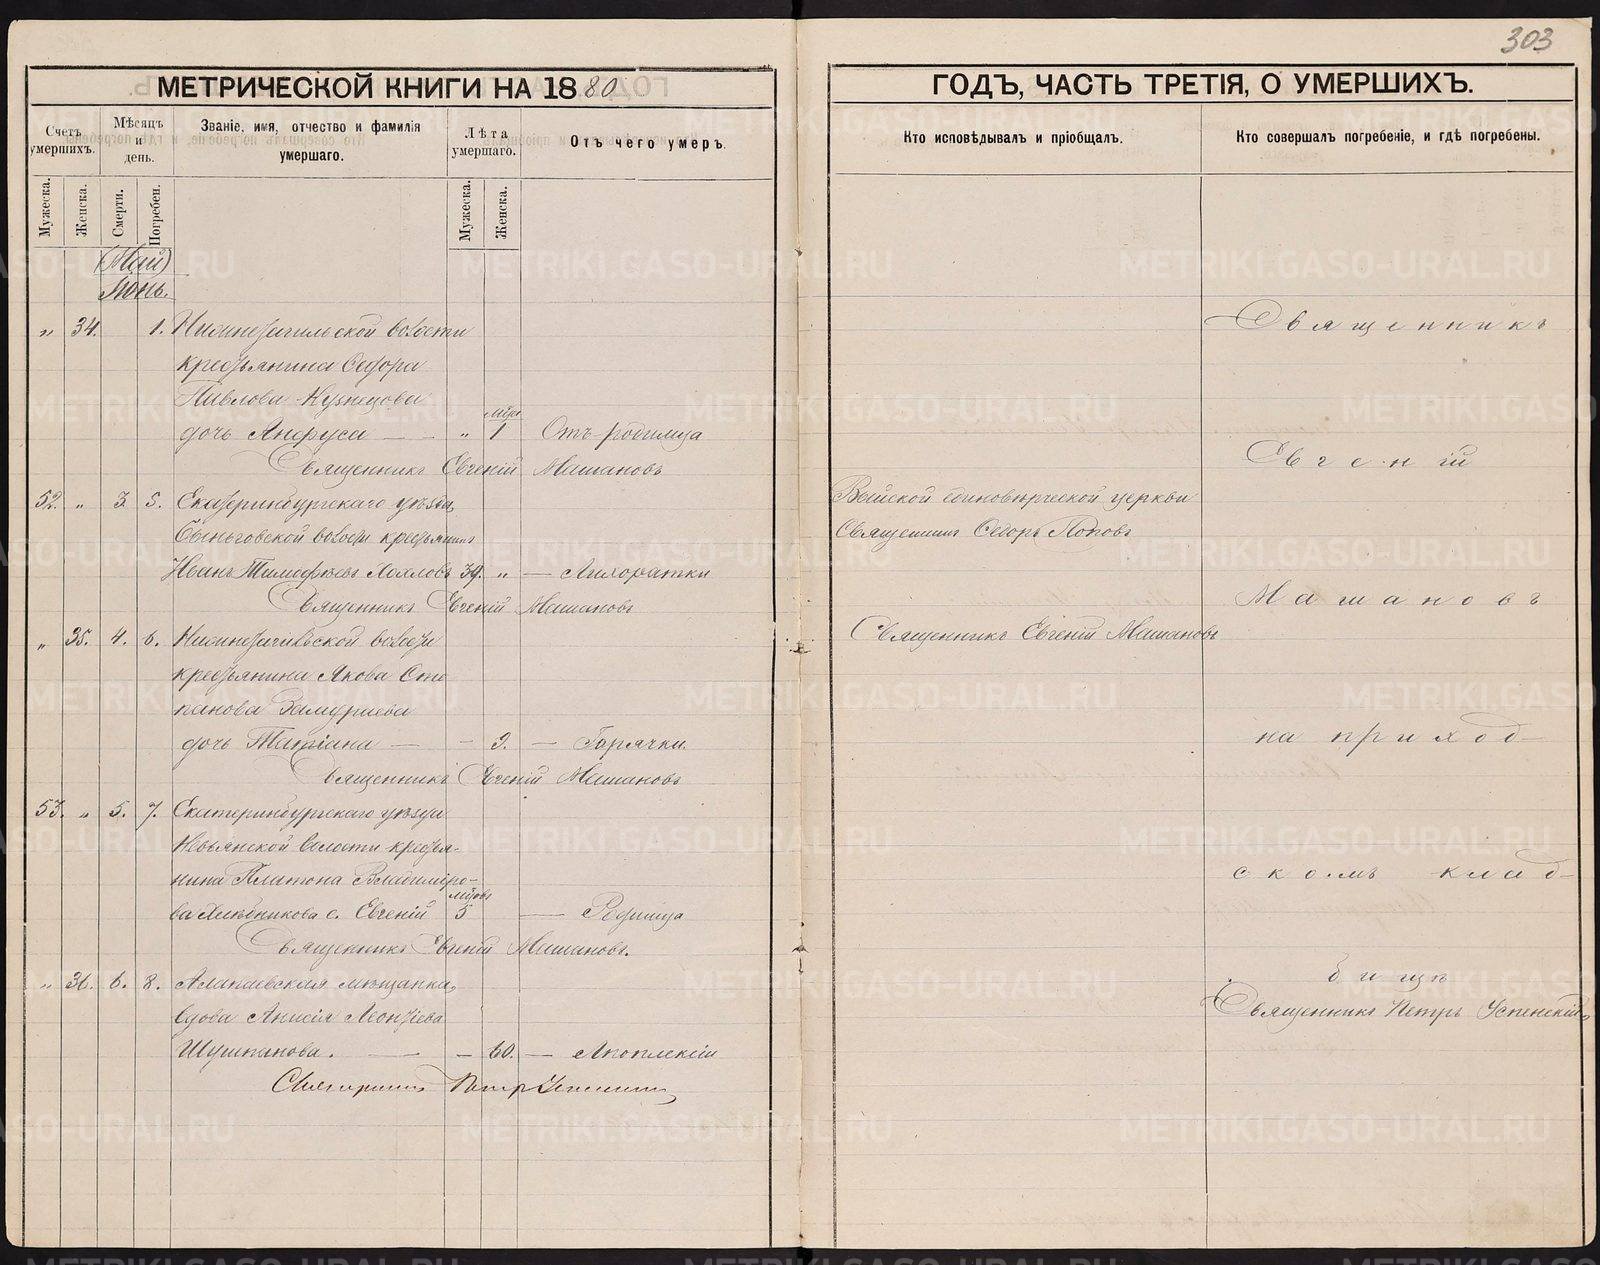 303
МЕТРИЧЕСКОЙ КНИГИ НА 1880
ГОДЪ, ЧАСТЬ ТРЕТІЯ, О УМЕРШИХЪ.
Счетъ умершихъ.
Мѣсяцъ и день.
Званіе, имя, отчество и фамилія умершаго.
Лѣта умершаго.
Отъ чего умеръ.
Кто исповѣдывалъ и пріобщалъ.
Кто совершалъ погребеніе, и гдѣ погребены.
Мужеска.
Женска.
Смерти.
Погребен.
Мужеска.
Женска.
(Май)
Іюнь.
„ 34. 1. Нижнетагильской волости
крестьянина Федора
Павлова Кузнецова
дочь Анфуса — „ 1 Отъ родимца
Священникъ Евгеній Машановъ
52. „ 3 5. Екатеринбургскаго уѣзда
Быньговской волости крестьянинъ
Иванъ Тимофѣевъ 39. „ — Лихорадки
Священникъ Евгеній Машановъ
„ 35. 4. 6. Нижнетагильской волости
крестьянина Якова Сте
панова
дочь Татіана — - 9. — Горячки.
Священникъ Евгеній Машановъ
53. „ 5. 7. Екатеринбургскаго уѣзда
Невьянской волости крестья-
нина Платона Владиміро-
мѣсяц
ва Хлѣбникова с. Евгеній 5 — Родимца
Священникъ Евгеній Машановъ.
„ 36. 6. 8. Алапаевская мѣщанка,
вдова Анисія Леонтіева
Шушпанова. — — 60. — Апоплексіи
Священникъ Петръ Успенскій
Выйской единовѣрческой церкви
Священникъ Федоръ Поповъ
Священникъ Евгеній Машановъ
Священникъ
Евгеній
Машановъ
на приход-
скомъ клад-
бищѣ
Священникъ Петръ Успенскій
METRIKI.GASO-URAL.RU